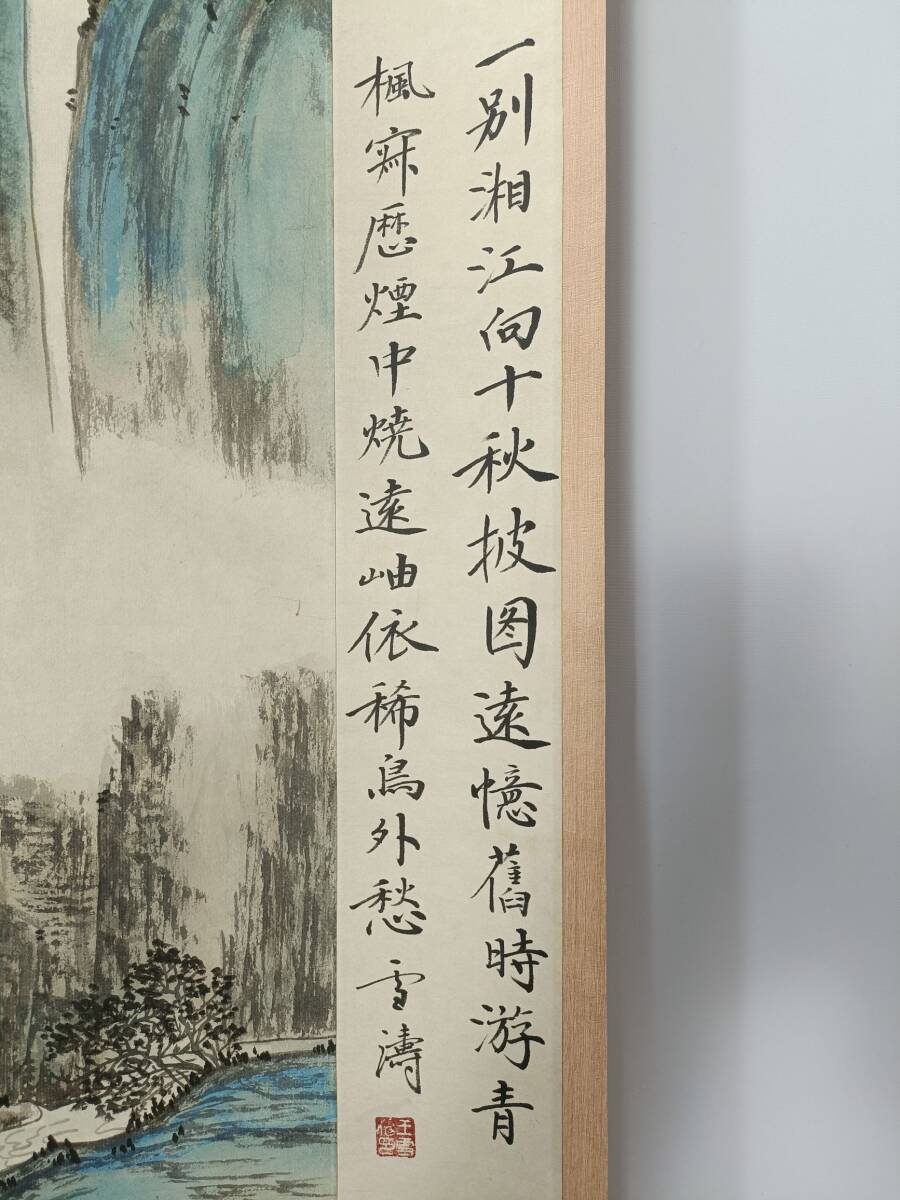 一别湘江向十秋披图遠憶舊時游青
楓寂歷煙中燒遠岫依稀鳥外愁 雪濤